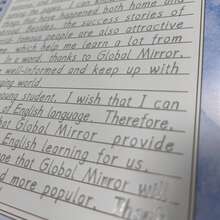 have happened both home and
Besides, the success stories of
people are also attractive
which help me learn a lot from
In a word, thanks to Global Mirror,
well-informed and keep up with
world.
young student, I wish that I can
of English language. Therefore,
that Global Mirror provide
English learning for us.
hope that Global Mirror will
more popular.